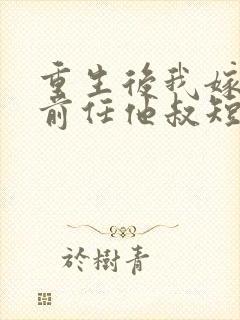 重生後我嫁
前任他叔短
於樹青